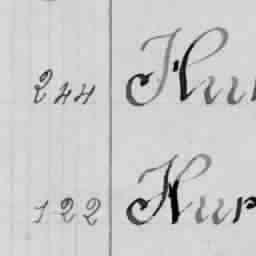 244 Hu
122 Hur